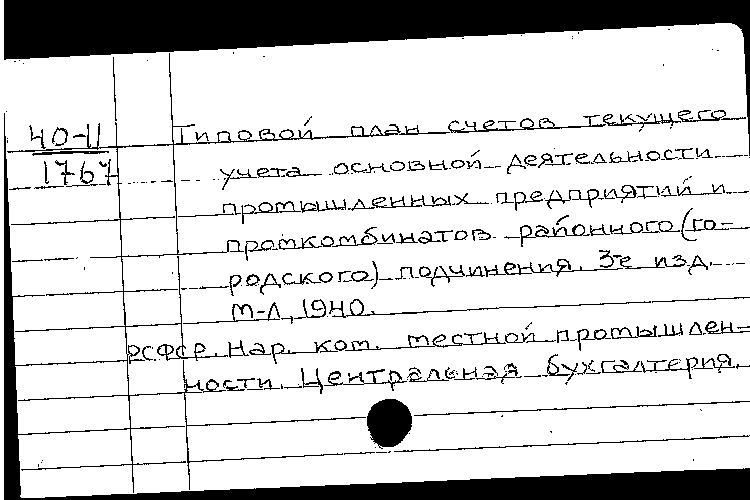 40-11
1767
Типовой план счетов текущего
учета основной деятельности
промышленных предприятий и
промкомбинатов районного (го-
родского) подчинения. 3-е изд.
М-Л, 1940.
РСФСР. Нар. ком. местной промышлен-
ности. Центральная бухгалтерия.